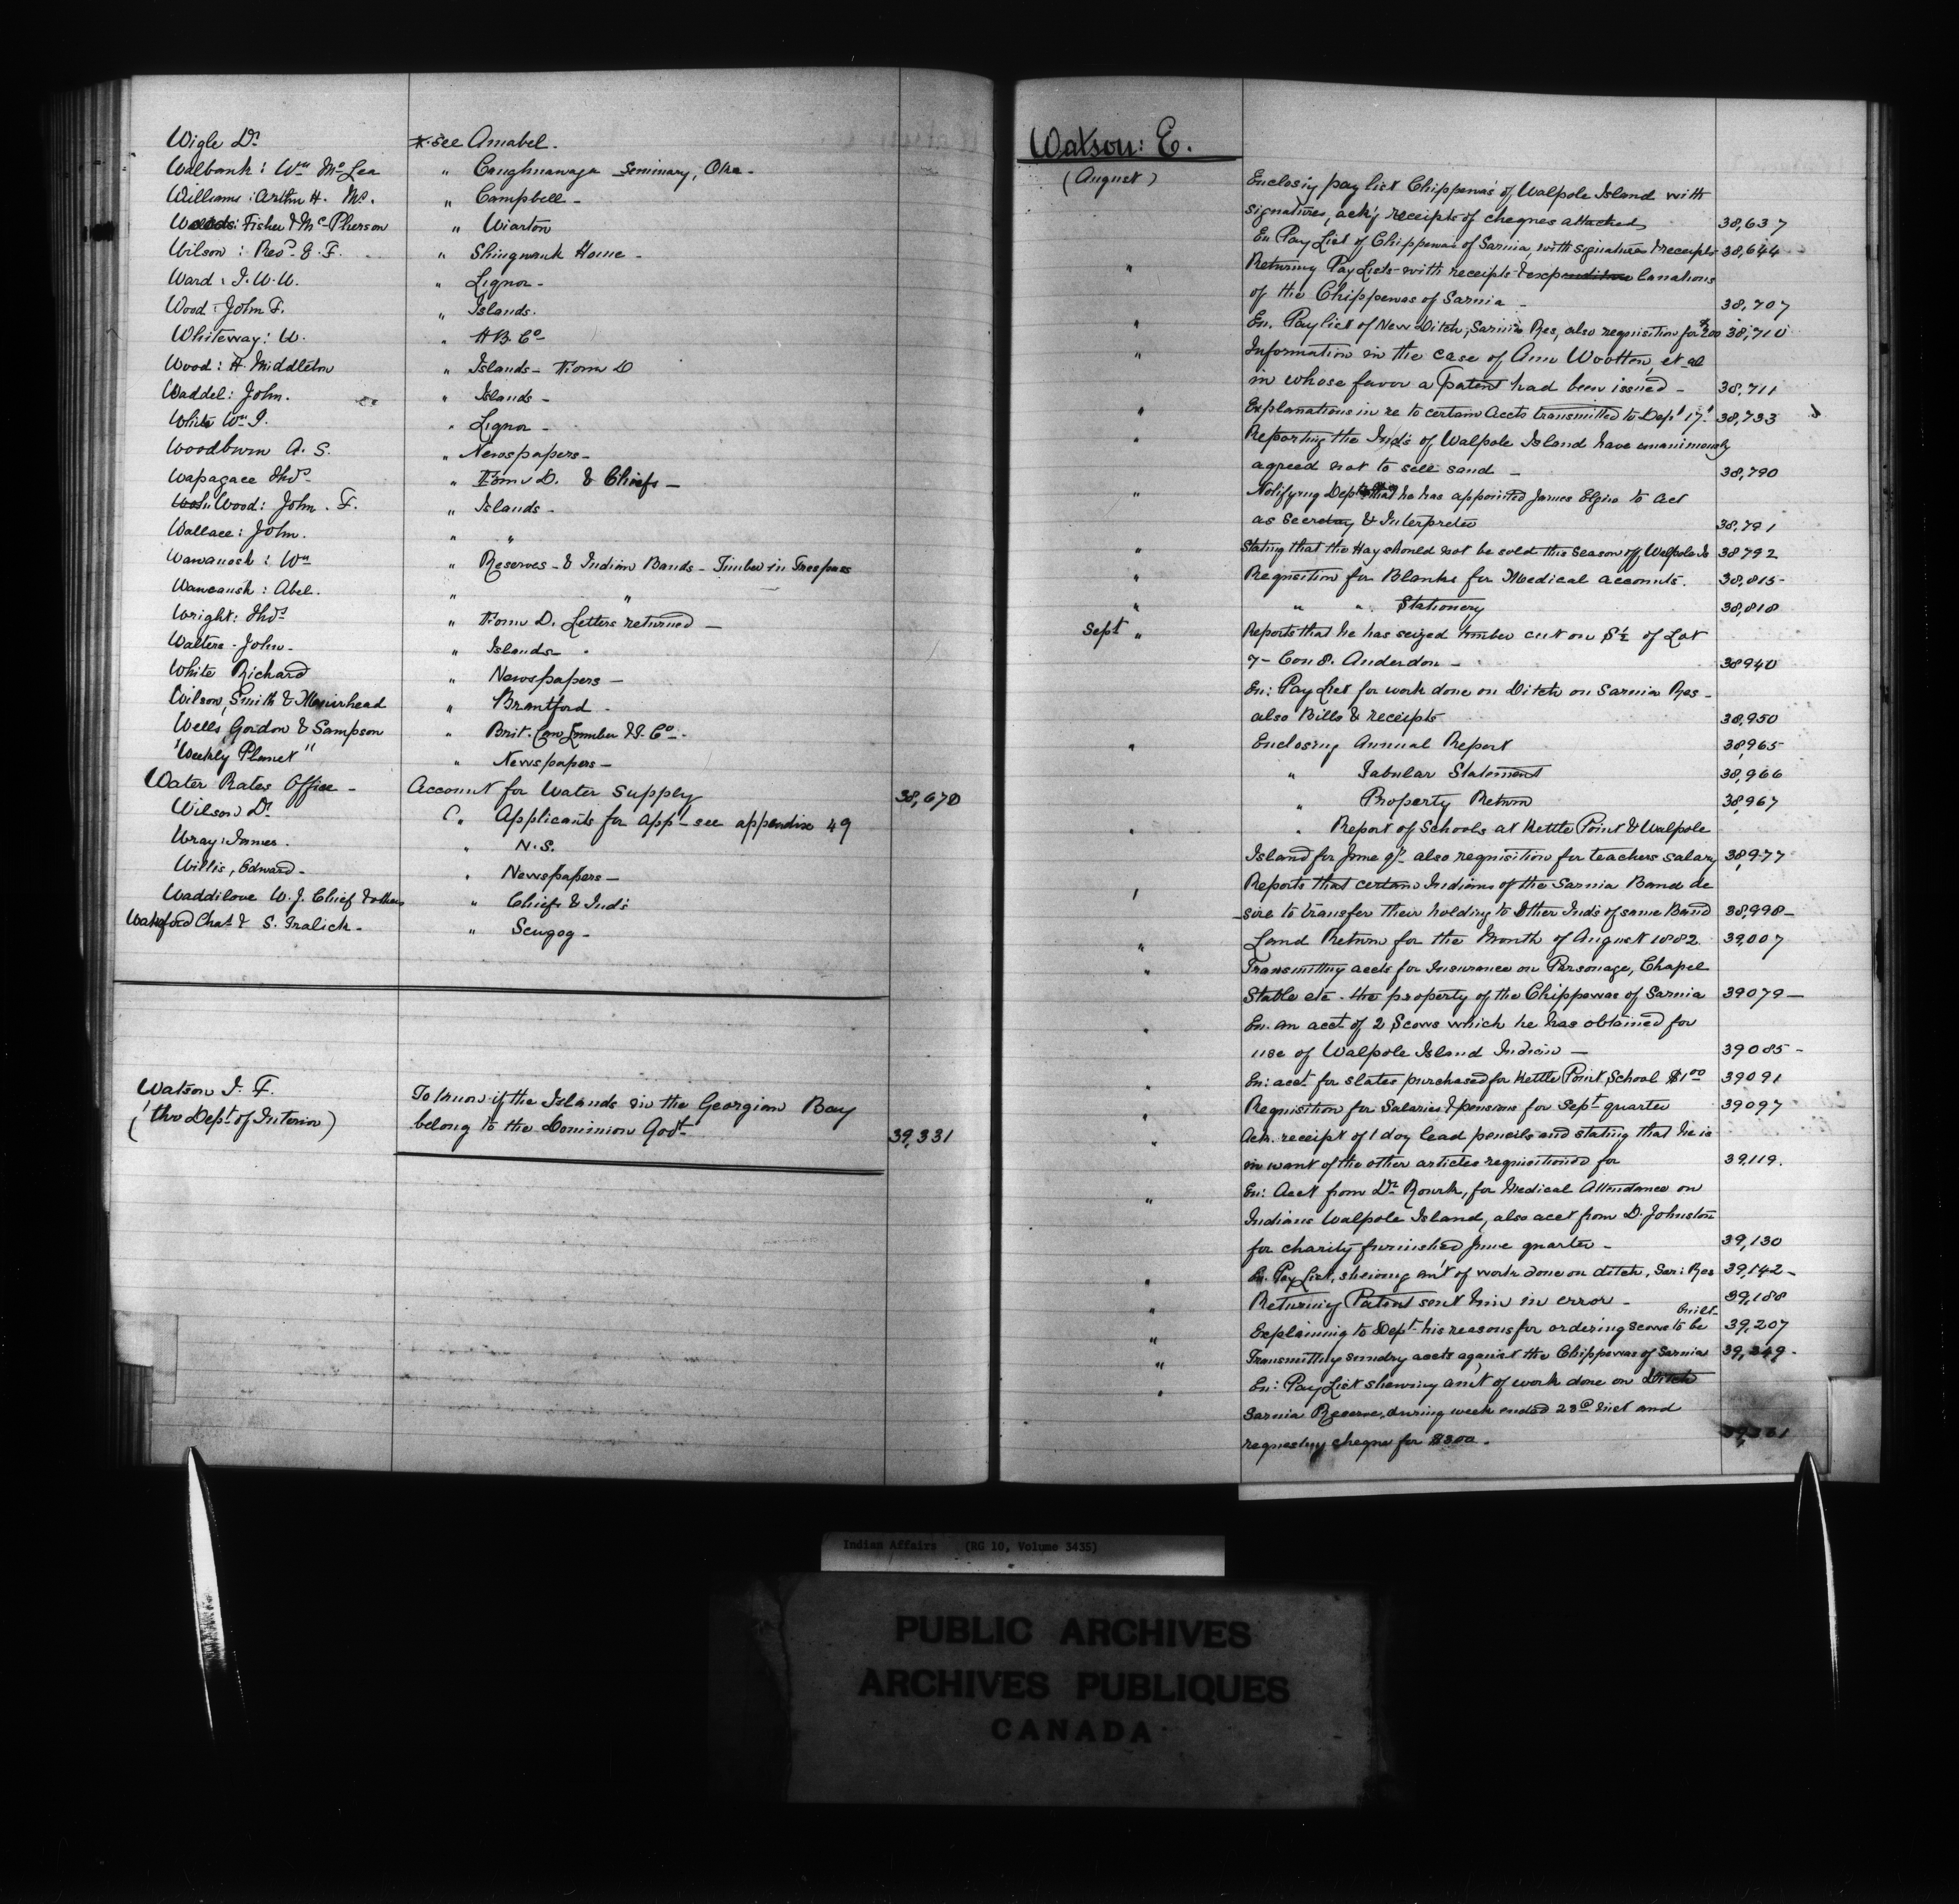 Wigle Dr *see Annabel.
Walbank: Wm McLea " Caughnawaga Seminary, Oka -
Williams: Arthur H. Mc. " Campbell -
Woods: Fisher & McPherson " Wiarton
Wilson: Revd. E. F. " Shingwauk Home -
Ward: J. W. W. " Liquor -
Wood: John F. " Islands.
Whiteway: W. " H B Co
Wood: H. Middleton " Islands - From D
Waddel: John. " Islands -
White Wm J. " Liquor -
Woodburn A. S. " Newspapers -
Wapagace Thos " From D. & Chiefs -
Wood: John F. " Islands -
Wallace: John. " "
Wawanosh: Wm " Reserves - & Indian Bands - Timber in Trespass
Wawanosh: Abel. " "
Wright: Thos " From D. Letters returned -
Walters - John - " Islands -
White Richard " Newspapers -
Wilson, Smith & Muirhead " Brantford -
Wells, Gordon & Sampson " Brit. Can Lumber & T. Co -
"Weekly Planet" " Newspapers -
Water Rates Office - Account for Water Supply 38,670
Wilson Dr C. " Applicants for App - see appendix 49
Wray: James. " N.S.
Willis, Edward - " Newspapers -
Waddilove W. J. Chief & others " Chiefs & Inds
Chas & S. Fralick - " Scugog -
Watson J. F. To know if the Islands in the Georgian Bay
(thro Dept of Interior) belong to the Dominion Govt 39,331
Watson: E.
(August) Enclosing pay list Chippewas of Walpole Island with
signatures, ackg receipts of cheques attached 38,637
En Pay List of Chippewas of Sarnia, with signatures & receipts 38,644
" Returning Pay Lists with receipts & expenditure lanations
of the Chippewas of Sarnia - 38,707
" En. Pay list of New Ditch, Sarnia Res, also requisition for $200 38,710
" Information in the case of Ann Wootton, et al
in whose favor a Patent had been issued - 38,711
" Explanations in re to certain Accts transmitted to Dept 17th 38,733
" Reporting the Inds of Walpole Island have unanimously
agreed not to sell sand - 38,790
" Notifying Dept that he has appointed James Elgin to act
as Secretary & Interpreter 38,791
" Stating that the Hay should not be sold this season off Walpole Is 38792
" Requisition for Blanks for Medical accounts. 38,815 -
" " " Stationery 38,818
Sept " Reports that he has seized timber cut on S½ of Lot
7 - Con 8. Anderdon - 38940
En: Pay List for work done on Ditch on Sarnia Res -
also Bills & receipts 38,950
" Enclosing Annual Report 38,965 -
" Tabular Statement 38,966
" Property Return 38,967
" " Report of Schools at Kettle Point & Walpole
Island for June qr also requisition for teachers salary 38,977
" Reports that certain Indians of the Sarnia Band de
-sire to transfer their holding to other Inds of same Band 38,998 -
" Land Return for the Month of August 1882. 39,007
" Transmitting accts for Insurance on Parsonage, Chapel
Stable etc. the property of the Chippewas of Sarnia 39079 -
" En. an acct of 2 Scows which he has obtained for
use of Walpole Island Indians - 39085 -
" En: acct for slates purchased for Kettle Point School $1.00 39091
" Requisition for Salaries & pensions for Sept quarter 39097
" Ack. receipt of 1 doz lead pencils and stating that he is
in want of the other articles requisitioned for 39,119.
" En: Acct from Dr Rourk, for Medical Attendance on
Indians Walpole Island, also acct from D. Johnston
for charity furnished June quarter - 39,130
" En. Pay List, shewing am't of work done on ditch, Sar: Res 39,142 -
" Returning Patent sent him in error - 39,188
" Explaining to Dept his reasons for ordering scows to be built - 39,207
" Transmitting sundry accts against the Chippewas of Sarnia 39,249 -
" En: Pay List shewing amt of work done on Ditch
Sarnia Reserve, during week ended 23rd inst and
requesting cheque for $300.
Indian Affairs (RG 10, Volume 3435)
PUBLIC ARCHIVES
ARCHIVES PUBLIQUES
CANADA